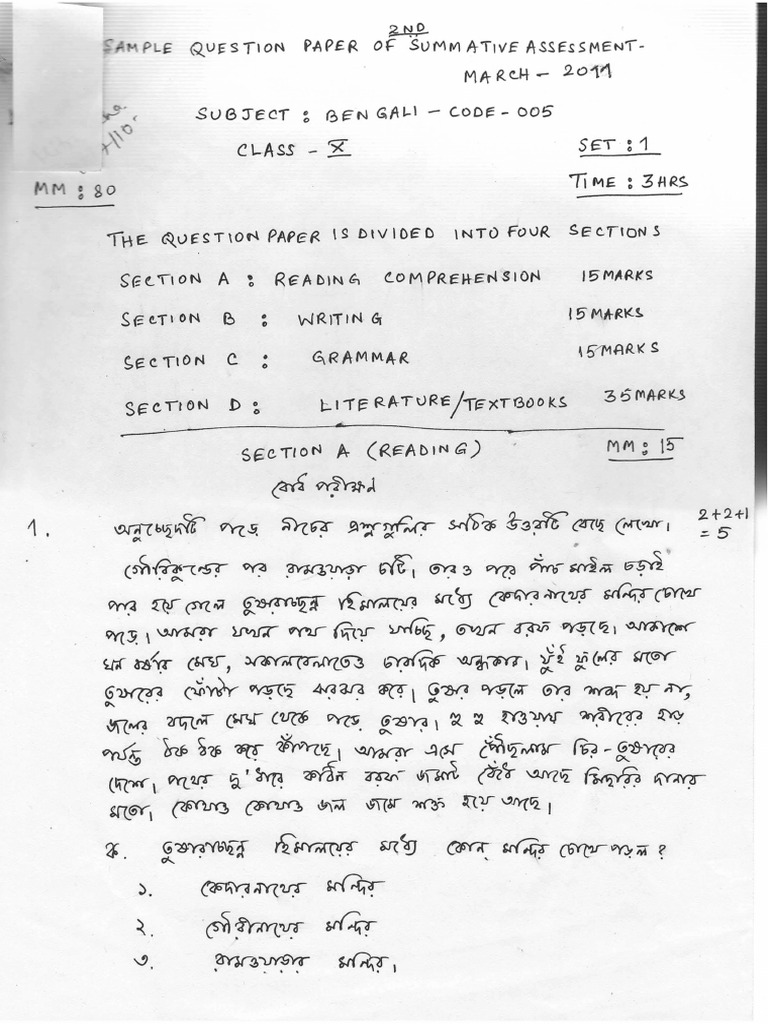 2ND
SAMPLE QUESTION PAPER OF SUMMATIVE ASSESSMENT-
MARCH - 2011
SUBJECT : BENGALI - CODE - 005
CLASS - X
SET : 1
TIME : 3HRS
MM : 80
THE QUESTION PAPER IS DIVIDED INTO FOUR SECTIONS
SECTION A : READING COMPREHENSION 15 MARKS
SECTION B : WRITING 15 MARKS
SECTION C : GRAMMAR 15 MARKS
SECTION D : LITERATURE/TEXTBOOKS 35 MARKS
SECTION A (READING) MM : 15
বোধ পরীক্ষন
1. অনুচ্ছেদটি পড়ে নীচের প্রশ্নগুলির সঠিক উত্তরটি বেছে লেখো। 2+2+1
= 5
গৌরিকুন্ডের পর রামওয়ারা চটি। তারও পরে পাঁচ মাইল চড়াই
পার হয়ে গেলে তুষারাচ্ছন্ন হিমালয়ের মধ্যে কেদারনাথের মন্দির চোখে
পড়ে। আমরা যখন পথ দিয়ে যাচ্ছি, তখন বরফ পড়ছে। আকাশে
ঘন বর্ষার মেঘ, সকালবেলাতেও চারদিক অন্ধকার। যুঁই ফুলের মতো
তুষারের ফোঁটা পড়ছে ঝরঝর করে। তুষার পড়লে তার শব্দ হয় না,
জলের বদলে মেঘ থেকে পড়ে তুষার। হু হু হাওয়ায় শরীরের হাড়
পর্যন্ত ঠক ঠক করে কাঁপছে। আমরা এসে পৌঁছলাম চির-তুষারের
দেশে। পথের দু'ধারে কঠিন বরফ জমাট বেঁধে আছে মিছরির দানার
মতো। কোথাও কোথাও জল জমে শক্ত হয়ে আছে।
ক. তুষারাচ্ছন্ন হিমালয়ের মধ্যে কোন্ মন্দির চোখে পড়ল ?
১. কেদারনাথের মন্দির
২. গৌরীনাথের মন্দির
৩. রামওয়াড়ার মন্দির।